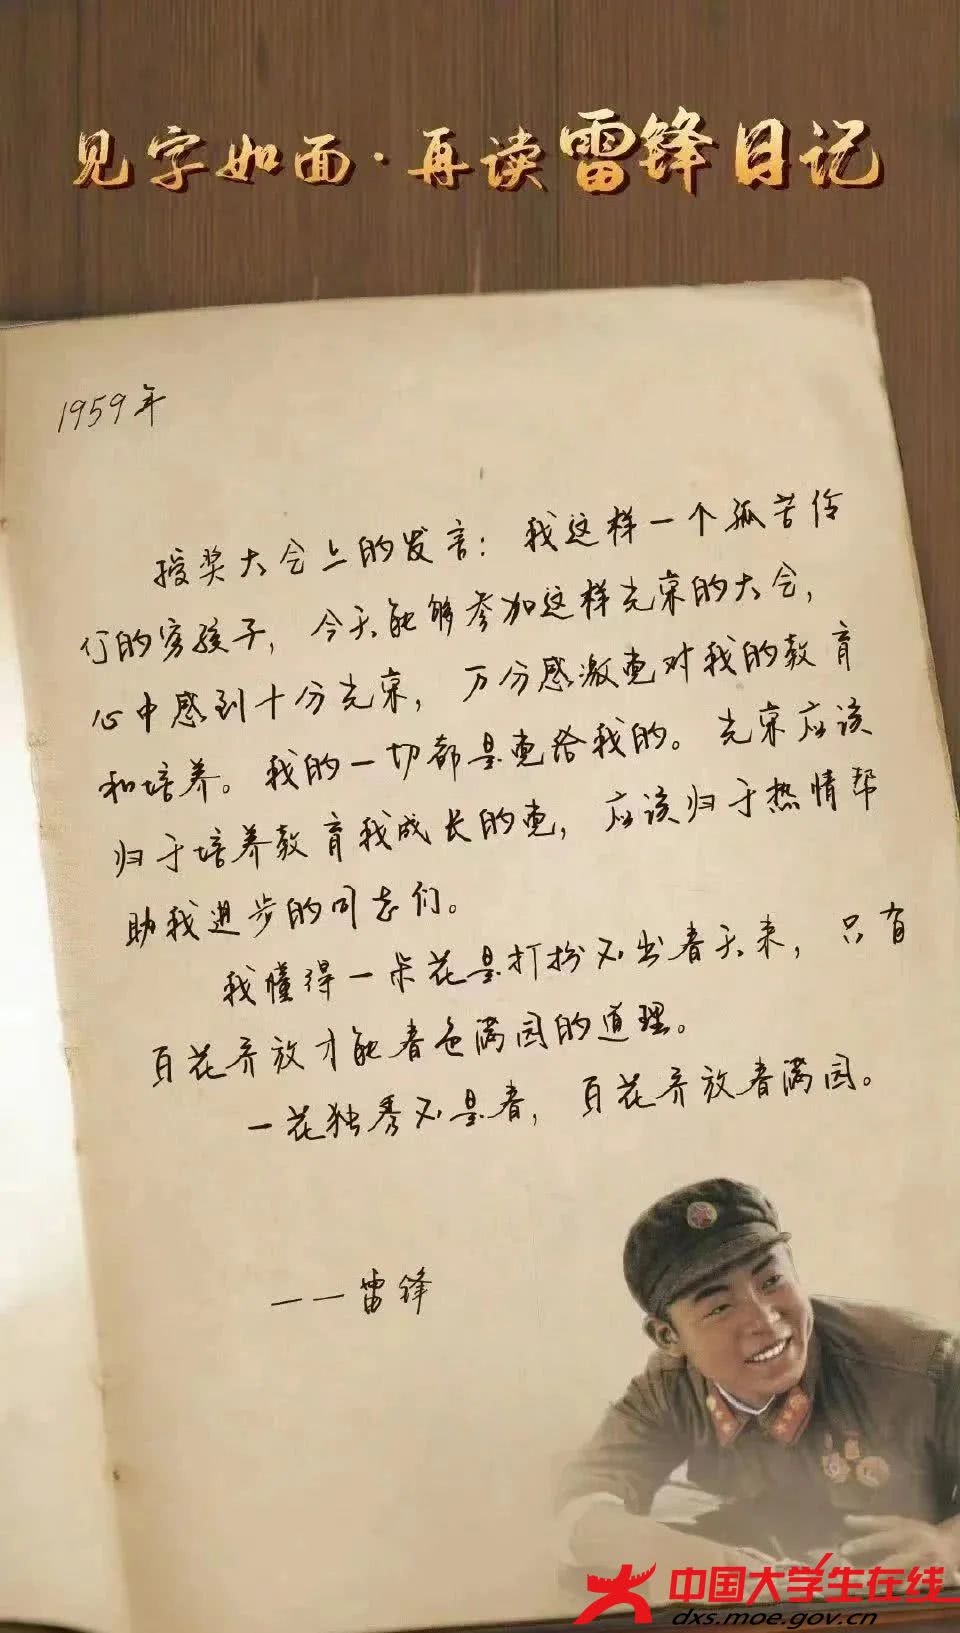 见字如面·再读雷锋日记
1959年
授奖大会上的发言：我这样一个孤苦伶
仃的穷孩子，今天能够参加这样光荣的大会，
心中感到十分光荣，万分感激党对我的教育
和培养。我的一切都是党给我的。光荣应该
归于培养教育我成长的党，应该归于热情帮
助我进步的同志们。
我懂得一朵花是打扮不出春天来，只有
百花齐放才能春色满园的道理。
一花独秀不是春，百花齐放春满园。
——雷锋
中国大学生在线
dxs.moe.gov.cn